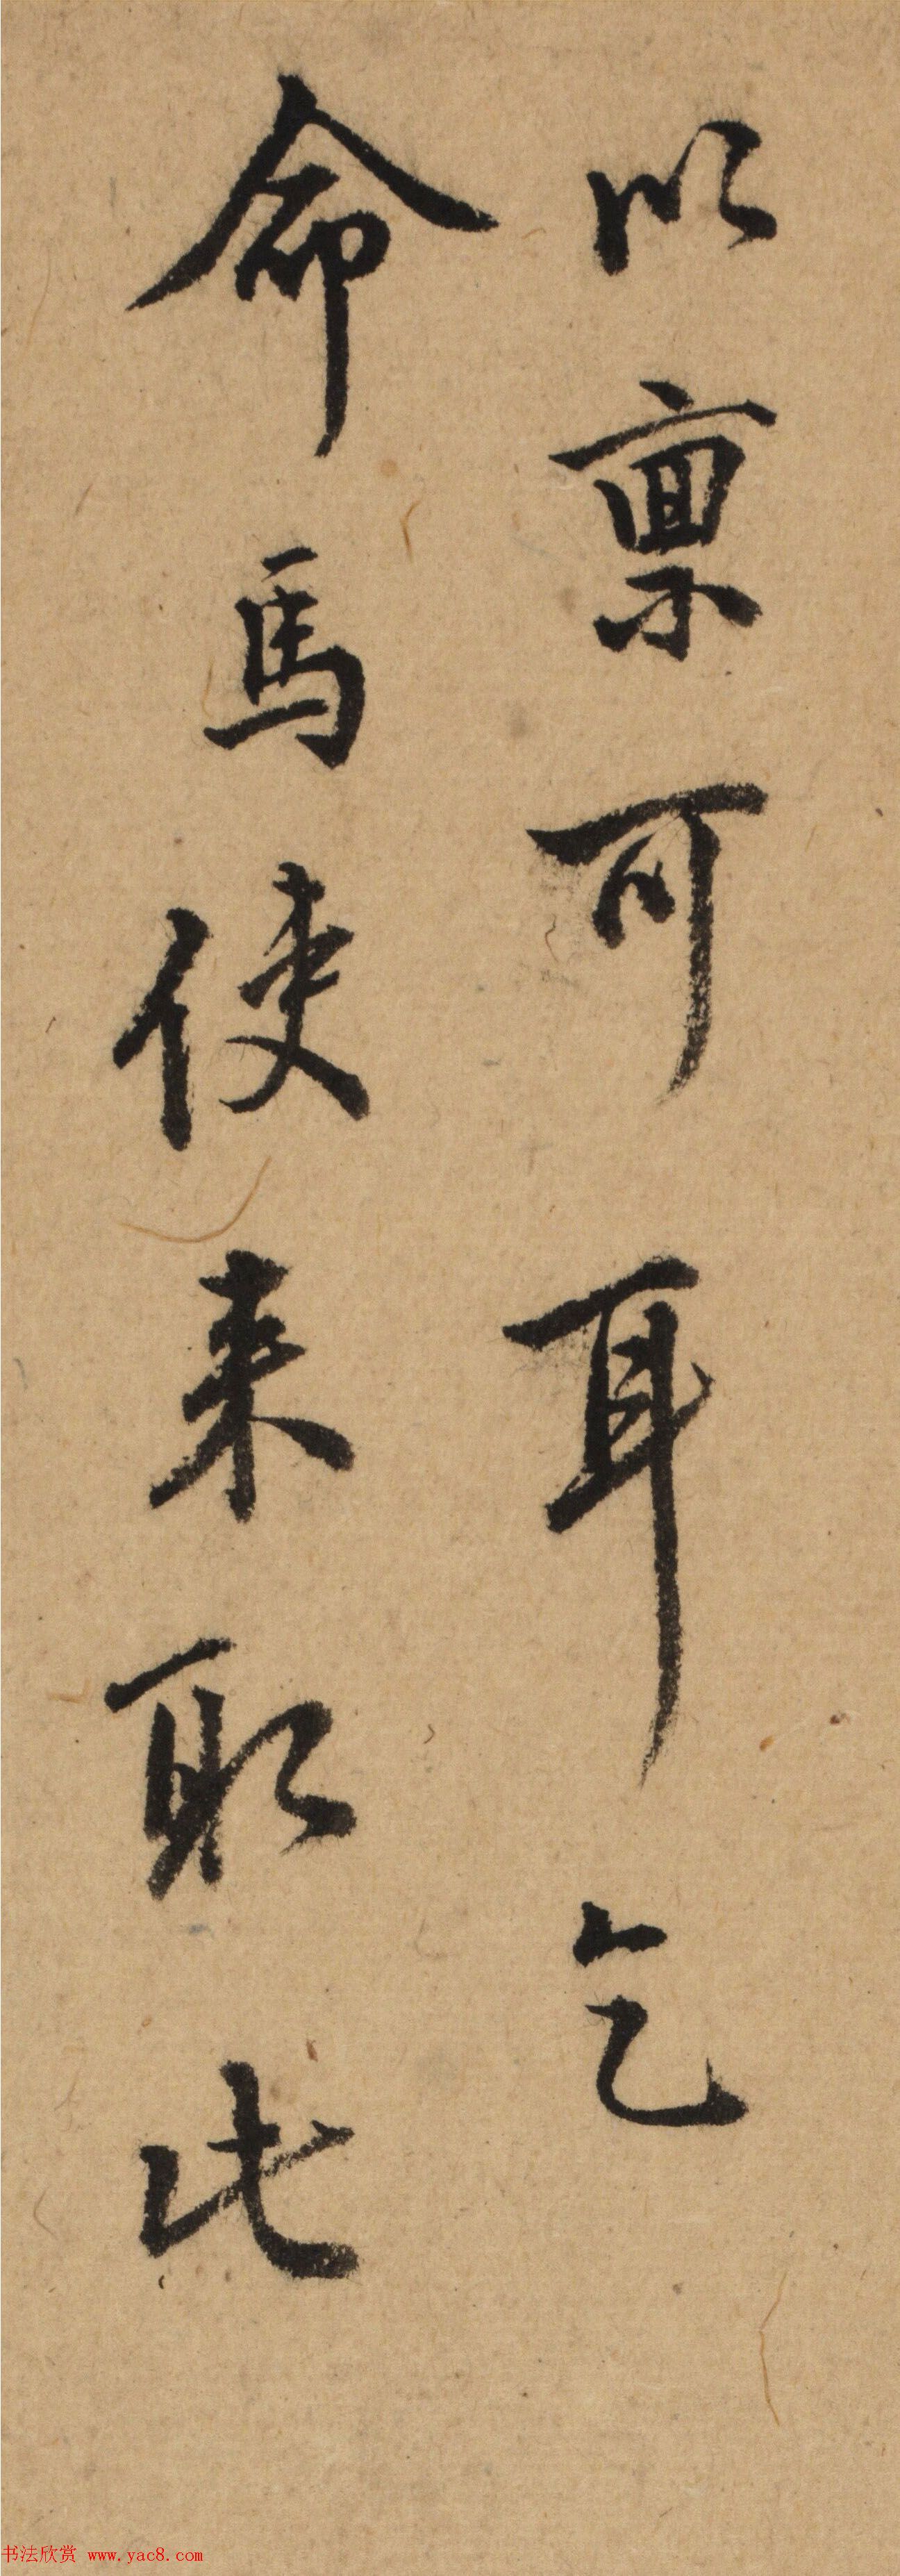 以稟可耳乞
命馬使来取此
书法欣赏 www.yac8.com